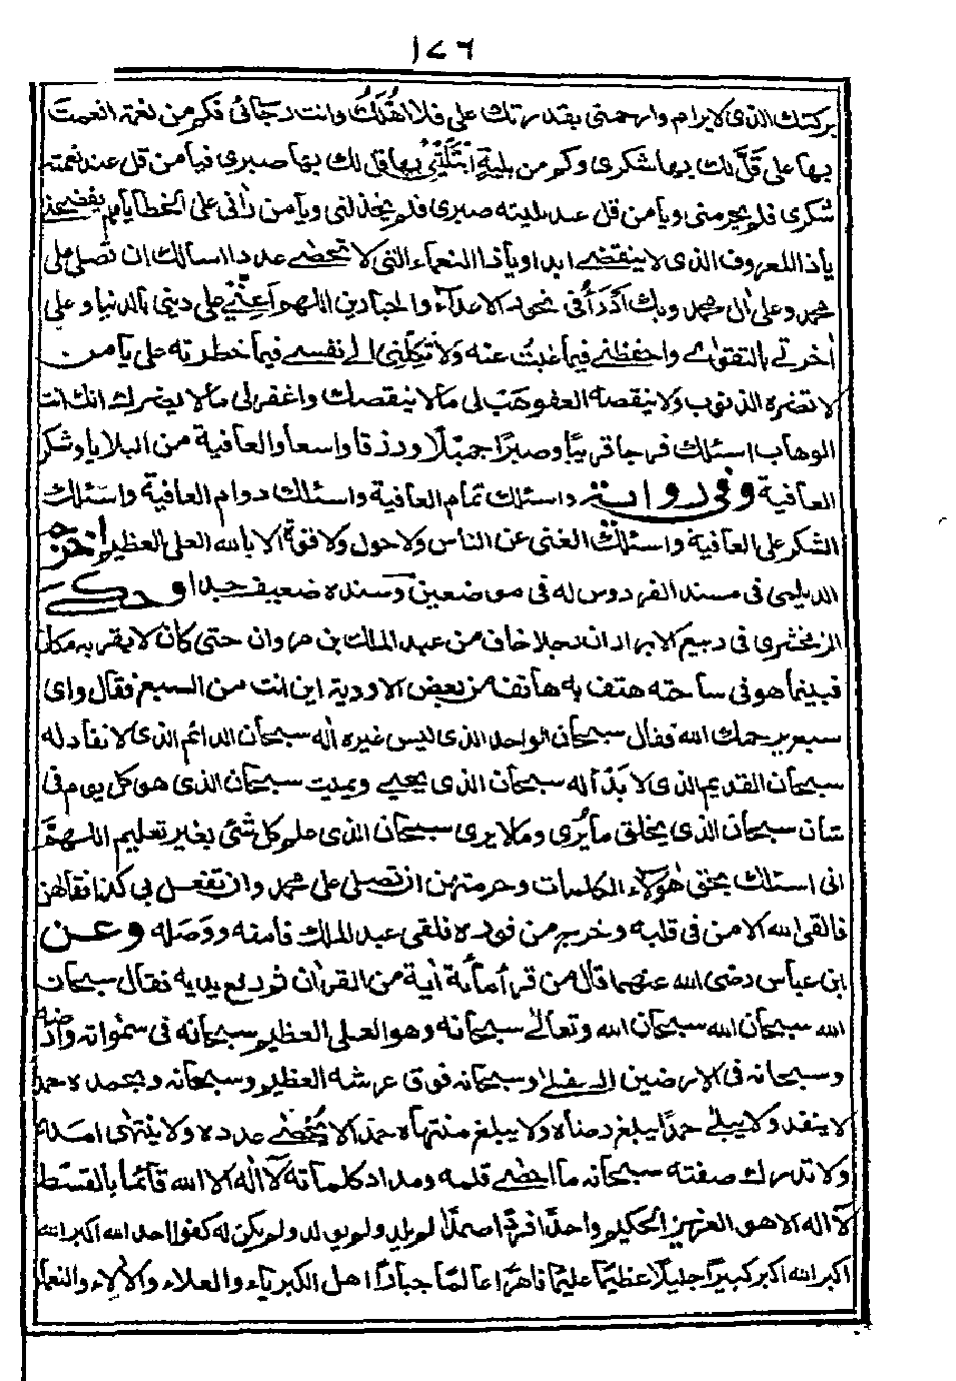 ١٧٦
بركنك الذى لا يرام وارحمنى بقدرتك على فلا اهلك وانت رجائى فكم من نعمة انعمت
بها على قلّ لك بها شكرى وكم من بلية ابتليتنى بها قل لك بها صبرى فيا من قل عند نعمته
شكرى فلم يحرمنى ويا من قل عند بليته صبرى فلم يخذلنى ويا من رآنى على الخطايا فلم يفضحنى
يا ذا المعروف الذى لا ينقضى ابدا ويا ذا النعماء التى لا تحصى عددا اسالك ان تصلى على
محمد وعلى آل محمد وبك ادرأ فى نحور الاعداء والجبارين اللهم اعنى على دينى بالدنيا وعلى
آخرتى بالتقوى واحفظنى فيما غبت عنه ولا تكلنى الى نفسى فيما حظرته على يا من
لا تضره الذنوب ولا ينقصه العفو هب لى ما لا ينقصك واغفر لى ما لا يضرك انك انت
الوهاب اسئلك فرجا قريبًا وصبرًا جميلًا ورزقا واسعا والعافية من البلايا وشكر
العافية وفى رواية واسئلك تمام العافية واسئلك دوام العافية واسئلك
الشكر على العافية واسئلك الغنى عن الناس ولا حول ولا قوة الا بالله العلى العظيم اخرجه
الديلمى فى مسند الفردوس له فى موضعين وسنده ضعيف جدا وحكى
الزمخشرى فى ربيع الابرار ان رجلا خاف من عبد الملك بن مروان حتى كان لا يقر به مكان
فبينما هو فى سياحته هتف به هاتف من بعض الاودية اين انت من السبع فقال واى
سبع يرحمك الله فقال سبحان الواحد الذى ليس غيره اله سبحان الدائم الذى لا نفاد له
سبحان القديم الذى لا بدأ له سبحان الذى يحيى ويميت سبحان الذى هو كل يوم فى
شان سبحان الذى يخلق ما يرى وما لا يرى سبحان الذى علم كل شئ بغير تعليم اللهمّ
انى اسئلك بحق هؤلاء الكلمات وحرمتهن ان تصلى على محمد وان تفعل بى كذا فقالهن
فالقى الله الامن فى قلبه وخرج من فوره فلقى عبد الملك فامنه ووصله وعن
ابن عباس رضى الله عنهما قال من قرأ مائة آية من القرآن ثم رفع يديه فقال سبحان
الله سبحان الله سبحان الله وتعالى سبحانه وهو العلى العظيم سبحانه فى سمواته وارضه
وسبحانه فى الارضين السفلى وسبحانه فوق عرشه العظيم وسبحانه وبحمده حمدا
لا ينفد ولا يبلى حمدًا يبلغ رضاه ولا يبلغ منتهاه حمدا لا يحصى عدده ولا ينتهى امده
ولا تدرك صفته سبحانه ما احصى قلمه ومداد كلماته لا اله الا الله قائما بالقسط
لا اله الا هو العزيز الحكيم واحدًا فردًا صمدًا لم يلد ولم يولد ولم يكن له كفوا احد الله اكبر الله
اكبر الله اكبر كبيرًا جليلًا عظيمًا عليمًا قاهرًا عالمًا جبارًا اهل الكبرياء والعلاء والآلاء والنعماء